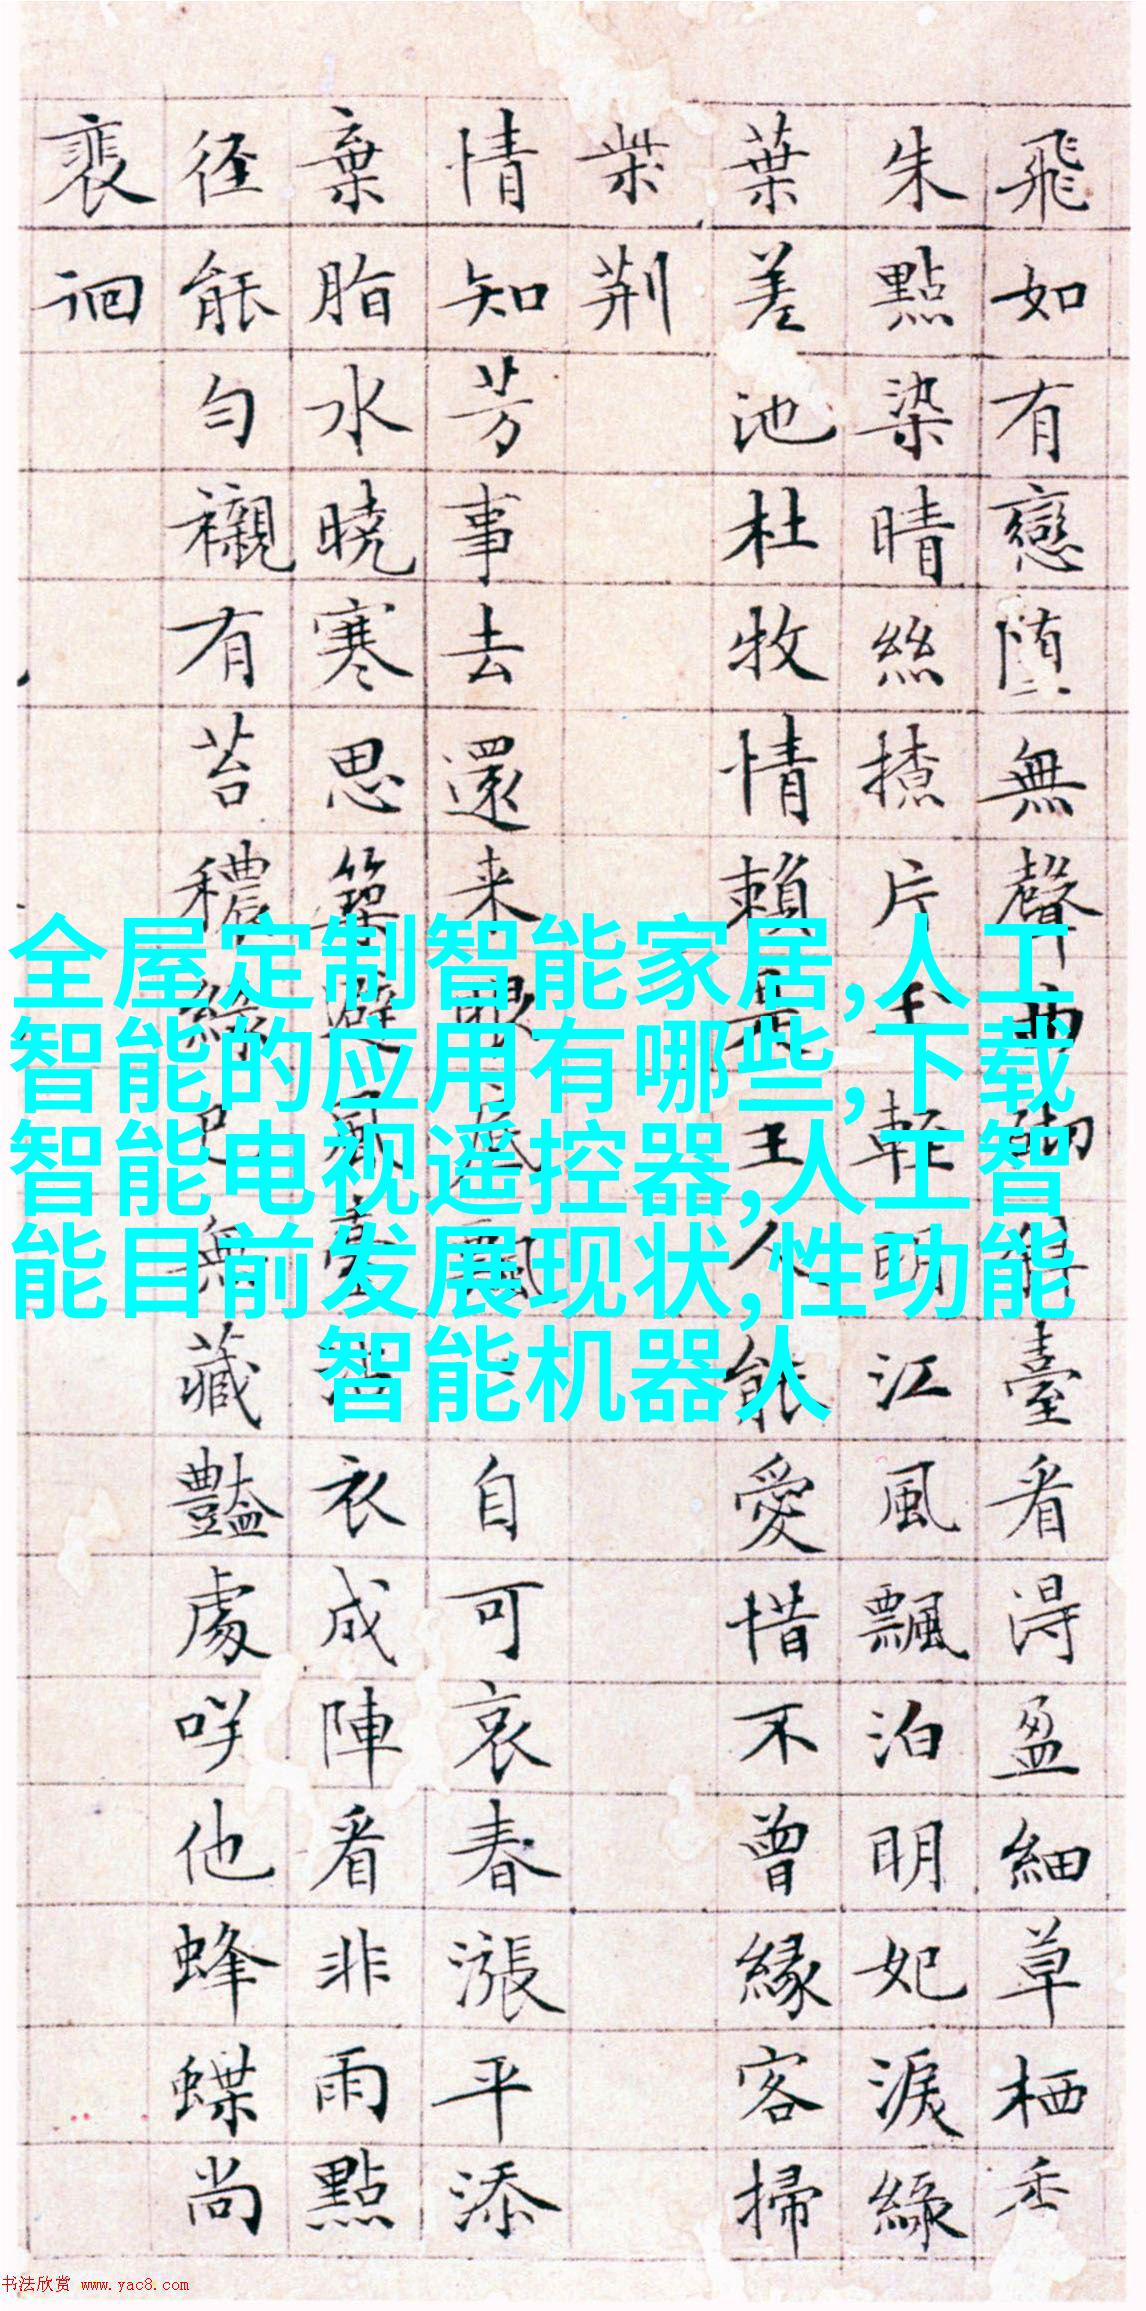 飛如有戀堕無聲曲砌臺看得盈細草栖香
朱點染晴絲撩片輕明江風飄泊明妃淚緑
葉差池杜牧情賴是主人能愛惜不曾緣客掃
柴荆
情知芳事去還来眼底飄自可哀春漲平添
棄脂水曉寒思築避風臺衣成陣看非雨點
径能勻襯有苔穠緑已無藏豔處咲他蜂蝶尚
裴徊
全屋定制智能家居,人工
智能的应用有哪些,下载
智能电视遥控器,人工智
能目前发展现状,性功能
智能机器人
书法欣赏 www.yac8.com